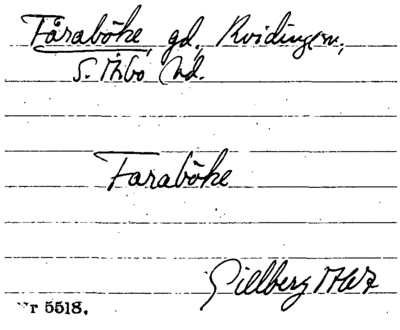 Fåraböke, gd, Kvidinge sn,
S. Åsbo hd.
Faraböke
Gillberg
Nr 5518.